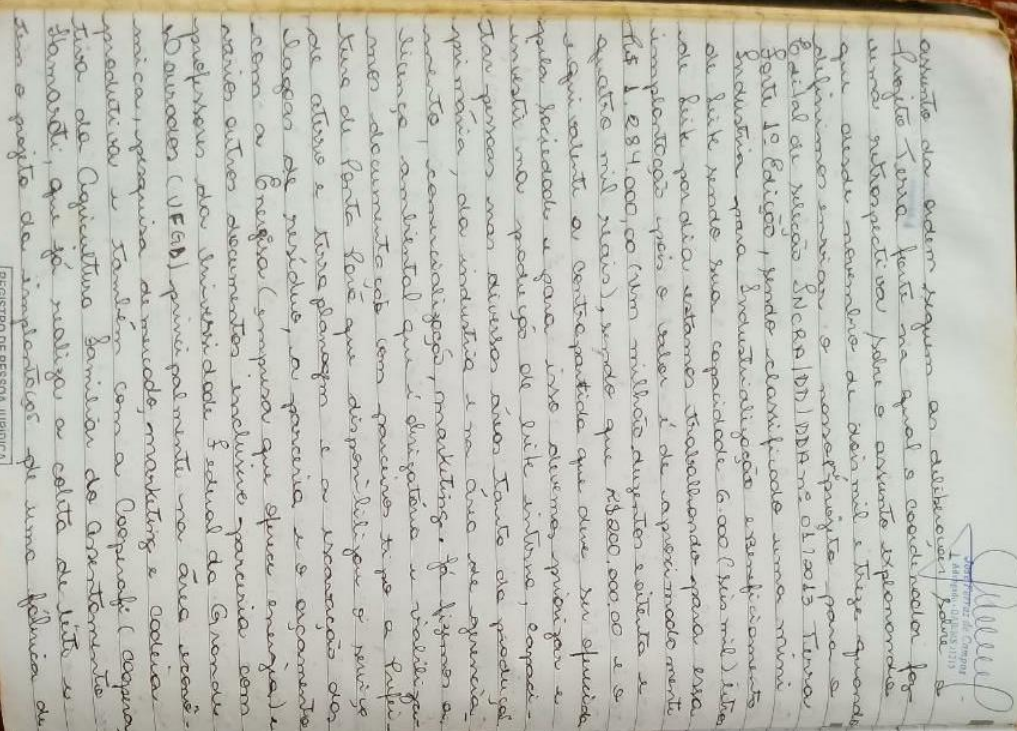 assunto da ordem seguem as deliberações sobre o
Projeto Terra forte na qual o coordenador faz
uma retrospectiva, sobre o assunto explanando
que desde novembro de dois mil e treze quando
definimos enviar o nosso projeto para o
Edital de seleção INCRA/DD/DDA nº 01/2013 Terra
Forte 1º Edição, sendo classificado uma mini
Indústria para Industrialização e Beneficiamento
de leite sendo sua capacidade 6.000 (seis mil) litros
de leite por dia estamos trabalhando para essa
implantação pois o valor é de aproximadamente
R$ 1.284.000,00 (um milhão duzentos e oitenta e
quatro mil reais), sendo que R$200.000.00 e o
equivalente a contrapartida que deve ser oferecida
pela sociedade e para isso devemos priorizar e
investir na produção de leite interno, capaci-
tar pessoas nas diversas áreas tanto da produção
primária, da industria e na área de gerencia
mento, comercialização, marketing. Já fizemos a
licença ambiental que é obrigatório e viabiliza-
mos documentação com parceiros tipo a Prefei-
tura de Ponta Porã que disponibilizou o serviço
de aterro e terraplanagem e a escavação das
lagoas de resíduo, a parceria e o orçamento
com a Energisa (empresa que oferece energia) e
vários outros documentos inclusive parceria com
professores da Universidade Federal da Grande
Dourados (UFGD) principalmente na área econô-
mica, pesquisa de mercado, marketing e cadeia
produtiva e também com a Coopaafi (coopera
tiva da Agricultura Familiar do assentamento
Itamarati, que já realiza a coleta de leite e
tem o projeto da implantação de uma fábrica de
José Farraz de Campos
Advogado-
REGISTRO DE PESSOA JURIDICA